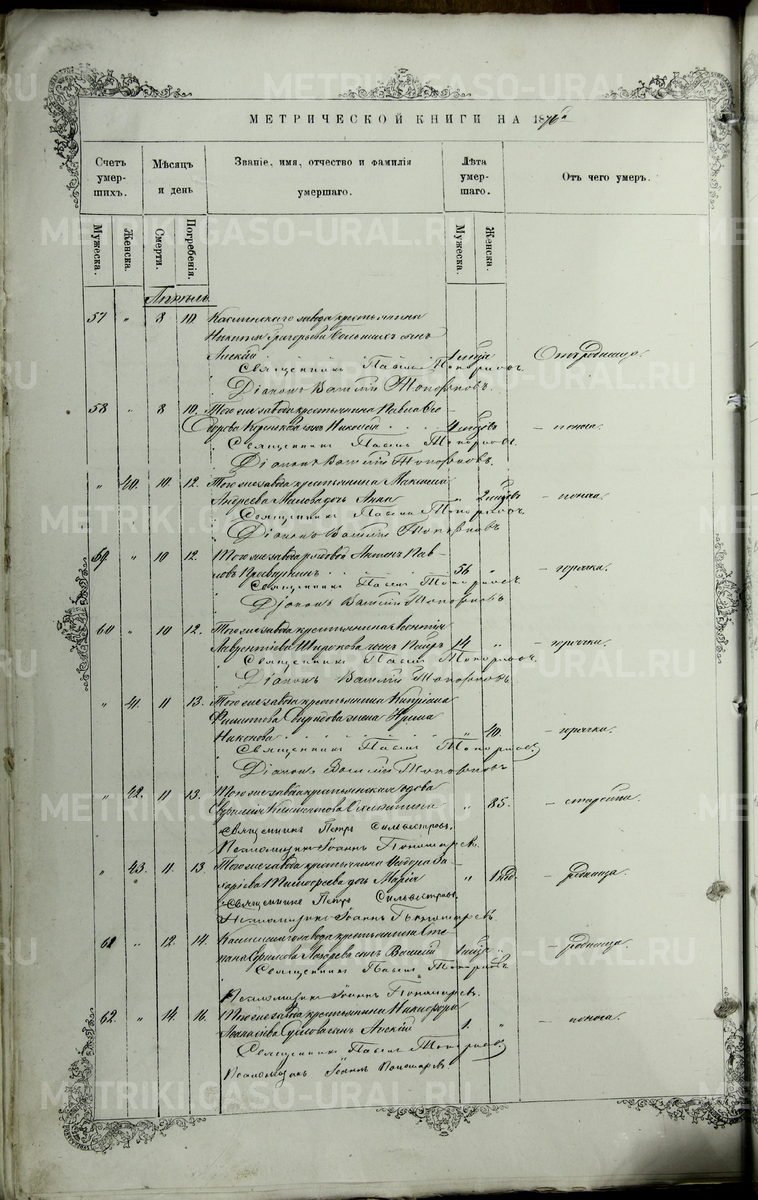 МЕТРИЧЕСКОЙ КНИГИ НА 1876
Счетъ умер-шихъ.
Мѣсяцъ и день
Званіе, имя, отчество и фамилія умершаго.
Лѣта умер-шаго.
Отъ чего умеръ.
Мужеска.
Женска.
Смерти.
Погребенія.
Мужеска.
Женска.
Апрѣль
57 " 8 10. Каслинскаго завода крестьянина
Никиты Григорьева сынъ
Алексій 1 Отъ родимца.
Священникъ Павелъ Топорковъ.
Діаконъ Василій Топорковъ.
58 " 8 10. Того же завода крестьянина Павла Его-
рова сынъ Николай — поноса.
Священникъ Павелъ Топорковъ.
Діаконъ Василій Топорковъ.
" 40. 10 12. Того же завода крестьянина Максима
Андреева дочь Анна " 2 — поноса.
Священникъ Павелъ Топорковъ.
Діаконъ Василій Топорковъ
59 " 10 12. Того же завода рядовой Антонъ Пав-
ловъ 56 " — горячки.
Священникъ Павелъ Топорковъ
Діаконъ Василій Топорковъ
60 " 10 12. Того же завода крестьянина
Лаврентіева Широкова сынъ Петръ 14 " — горячки.
Священникъ Павелъ Топорковъ.
Діаконъ Василій Топорковъ
" 41. 11 13. Того же завода крестьянина Кипріана
Филиппова Свиридова жена Ирина
Никонова " 40. — горячки.
Священникъ Павелъ Топорковъ
Діаконъ Василій Топорковъ
" 42. 11 13. Того же завода крестьянская вдова
" 85. — старости.
Священникъ Петръ Сильвестровъ.
Псаломщикъ Іоаннъ Пономаревъ.
" 43. 11. 13. Того же завода крестьянина Ѳедора За-
харіева дочь Марія " — родимца.
Священникъ Петръ Сильвестровъ.
Псаломщикъ Іоаннъ Пономаревъ
61 " 12. 14. Каслинскаго завода крестьянина Сте-
пана сынъ Василій — родимца.
Священникъ Павелъ Топорковъ
Псаломщикъ Іоаннъ Пономаревъ.
62. " 14. 16. Того же завода крестьянина Никифора
сынъ Алексій 1. " — поноса.
Священникъ Павелъ Топорковъ
Псаломщикъ Іоаннъ Пономаревъ
METRIKI.GASO-URAL.RU